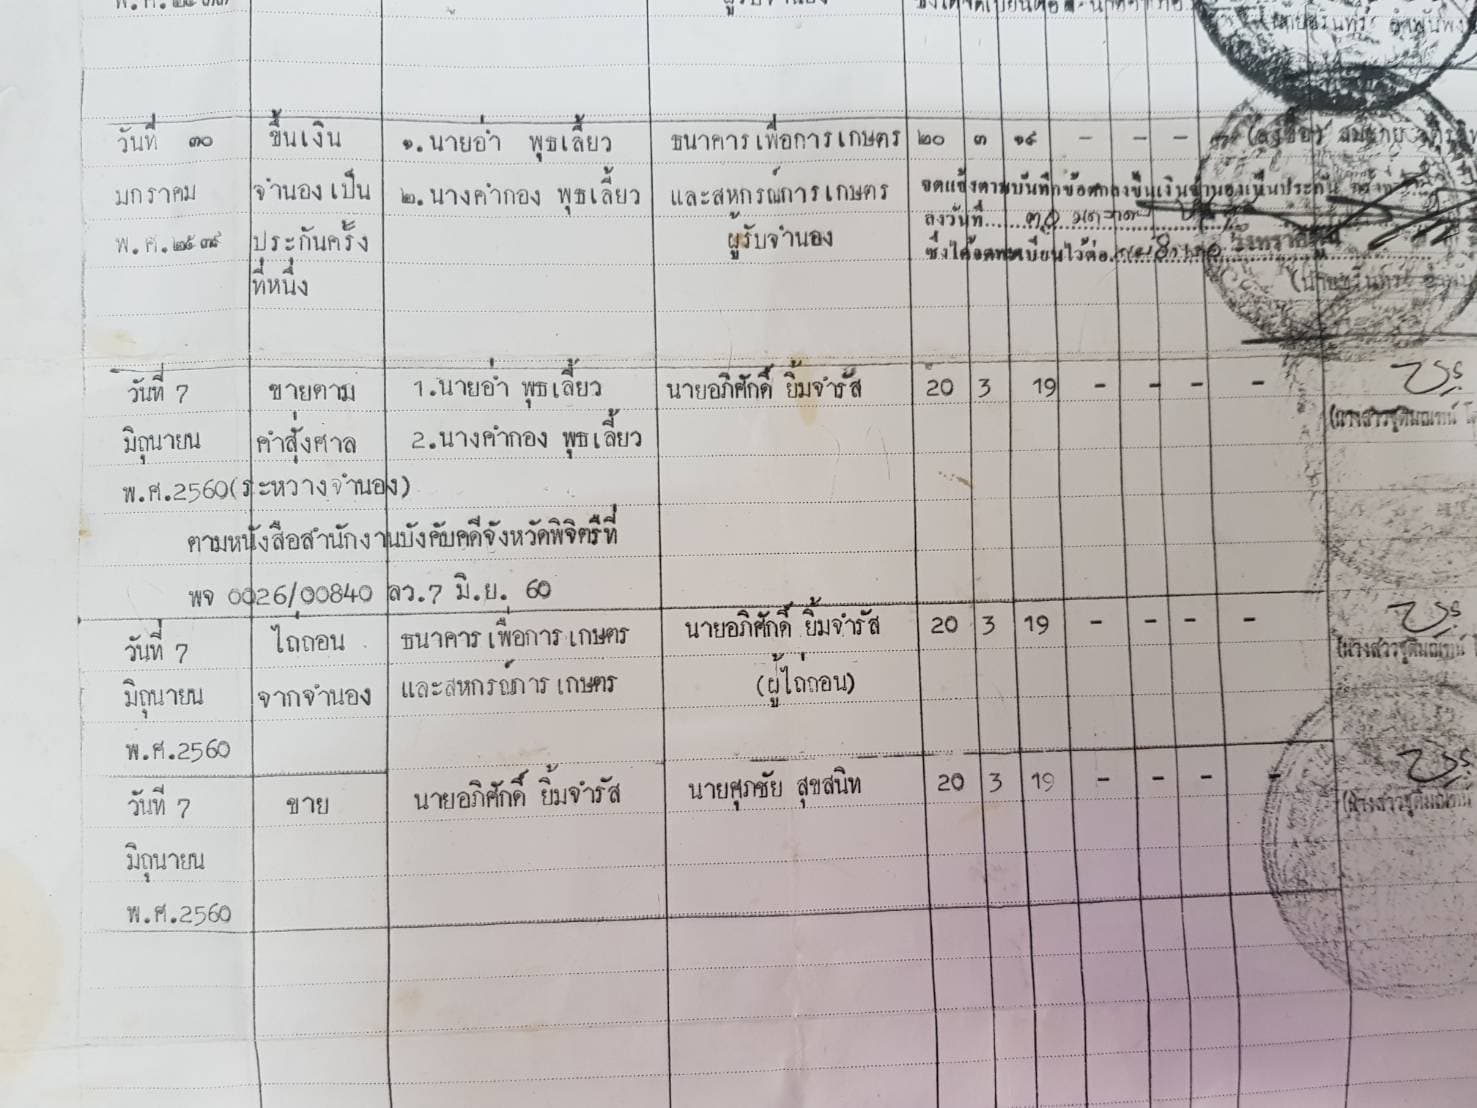 ผู้รับจำนอง
วันที่ ๓๐ ขึ้นเงิน ๑.นายอ่ำ พุธเลี้ยว ธนาคารเพื่อการเกษตร ๒๐ ๓ ๑๙ - - - -
มกราคม จำนองเป็น ๒.นางคำกอง พุธเลี้ยว และสหกรณ์การเกษตร จดแจ้งตามบันทึกข้อตกลงขึ้นเงินจำนองเป็นประกัน
พ.ศ.๒๕๓๙ ประกันครั้ง ผู้รับจำนอง ลงวันที่
ที่หนึ่ง ซึ่งได้จดทะเบียนไว้ต่อ
วันที่ 7 ขายตาม 1.นายอ่ำ พุธเลี้ยว นายอภิศักดิ์ ยิ้มจำรัส 20 3 19 - - - -
มิถุนายน คำสั่งศาล 2.นางคำกอง พุธเลี้ยว
พ.ศ.2560(ระหวางจำนอง)
ตามหนังสือสำนักงานบังคับคดีจังหวัดพิจิตรืที่
พจ 0026/00840 ลว.7 มิ.ย. 60
วันที่ 7 ไถ่ถอน ธนาคารเพื่อการเกษตร นายอภิศักดิ์ ยิ้มจำรัส 20 3 19 - - - -
มิถุนายน จากจำนอง และสหกรณ์การเกษตร (ผู้ไถ่ถอน)
พ.ศ.2560
วันที่ 7 ขาย นายอภิศักดิ์ ยิ้มจำรัส นายศุภชัย สุขสนิท 20 3 19 - - - -
มิถุนายน
พ.ศ.2560